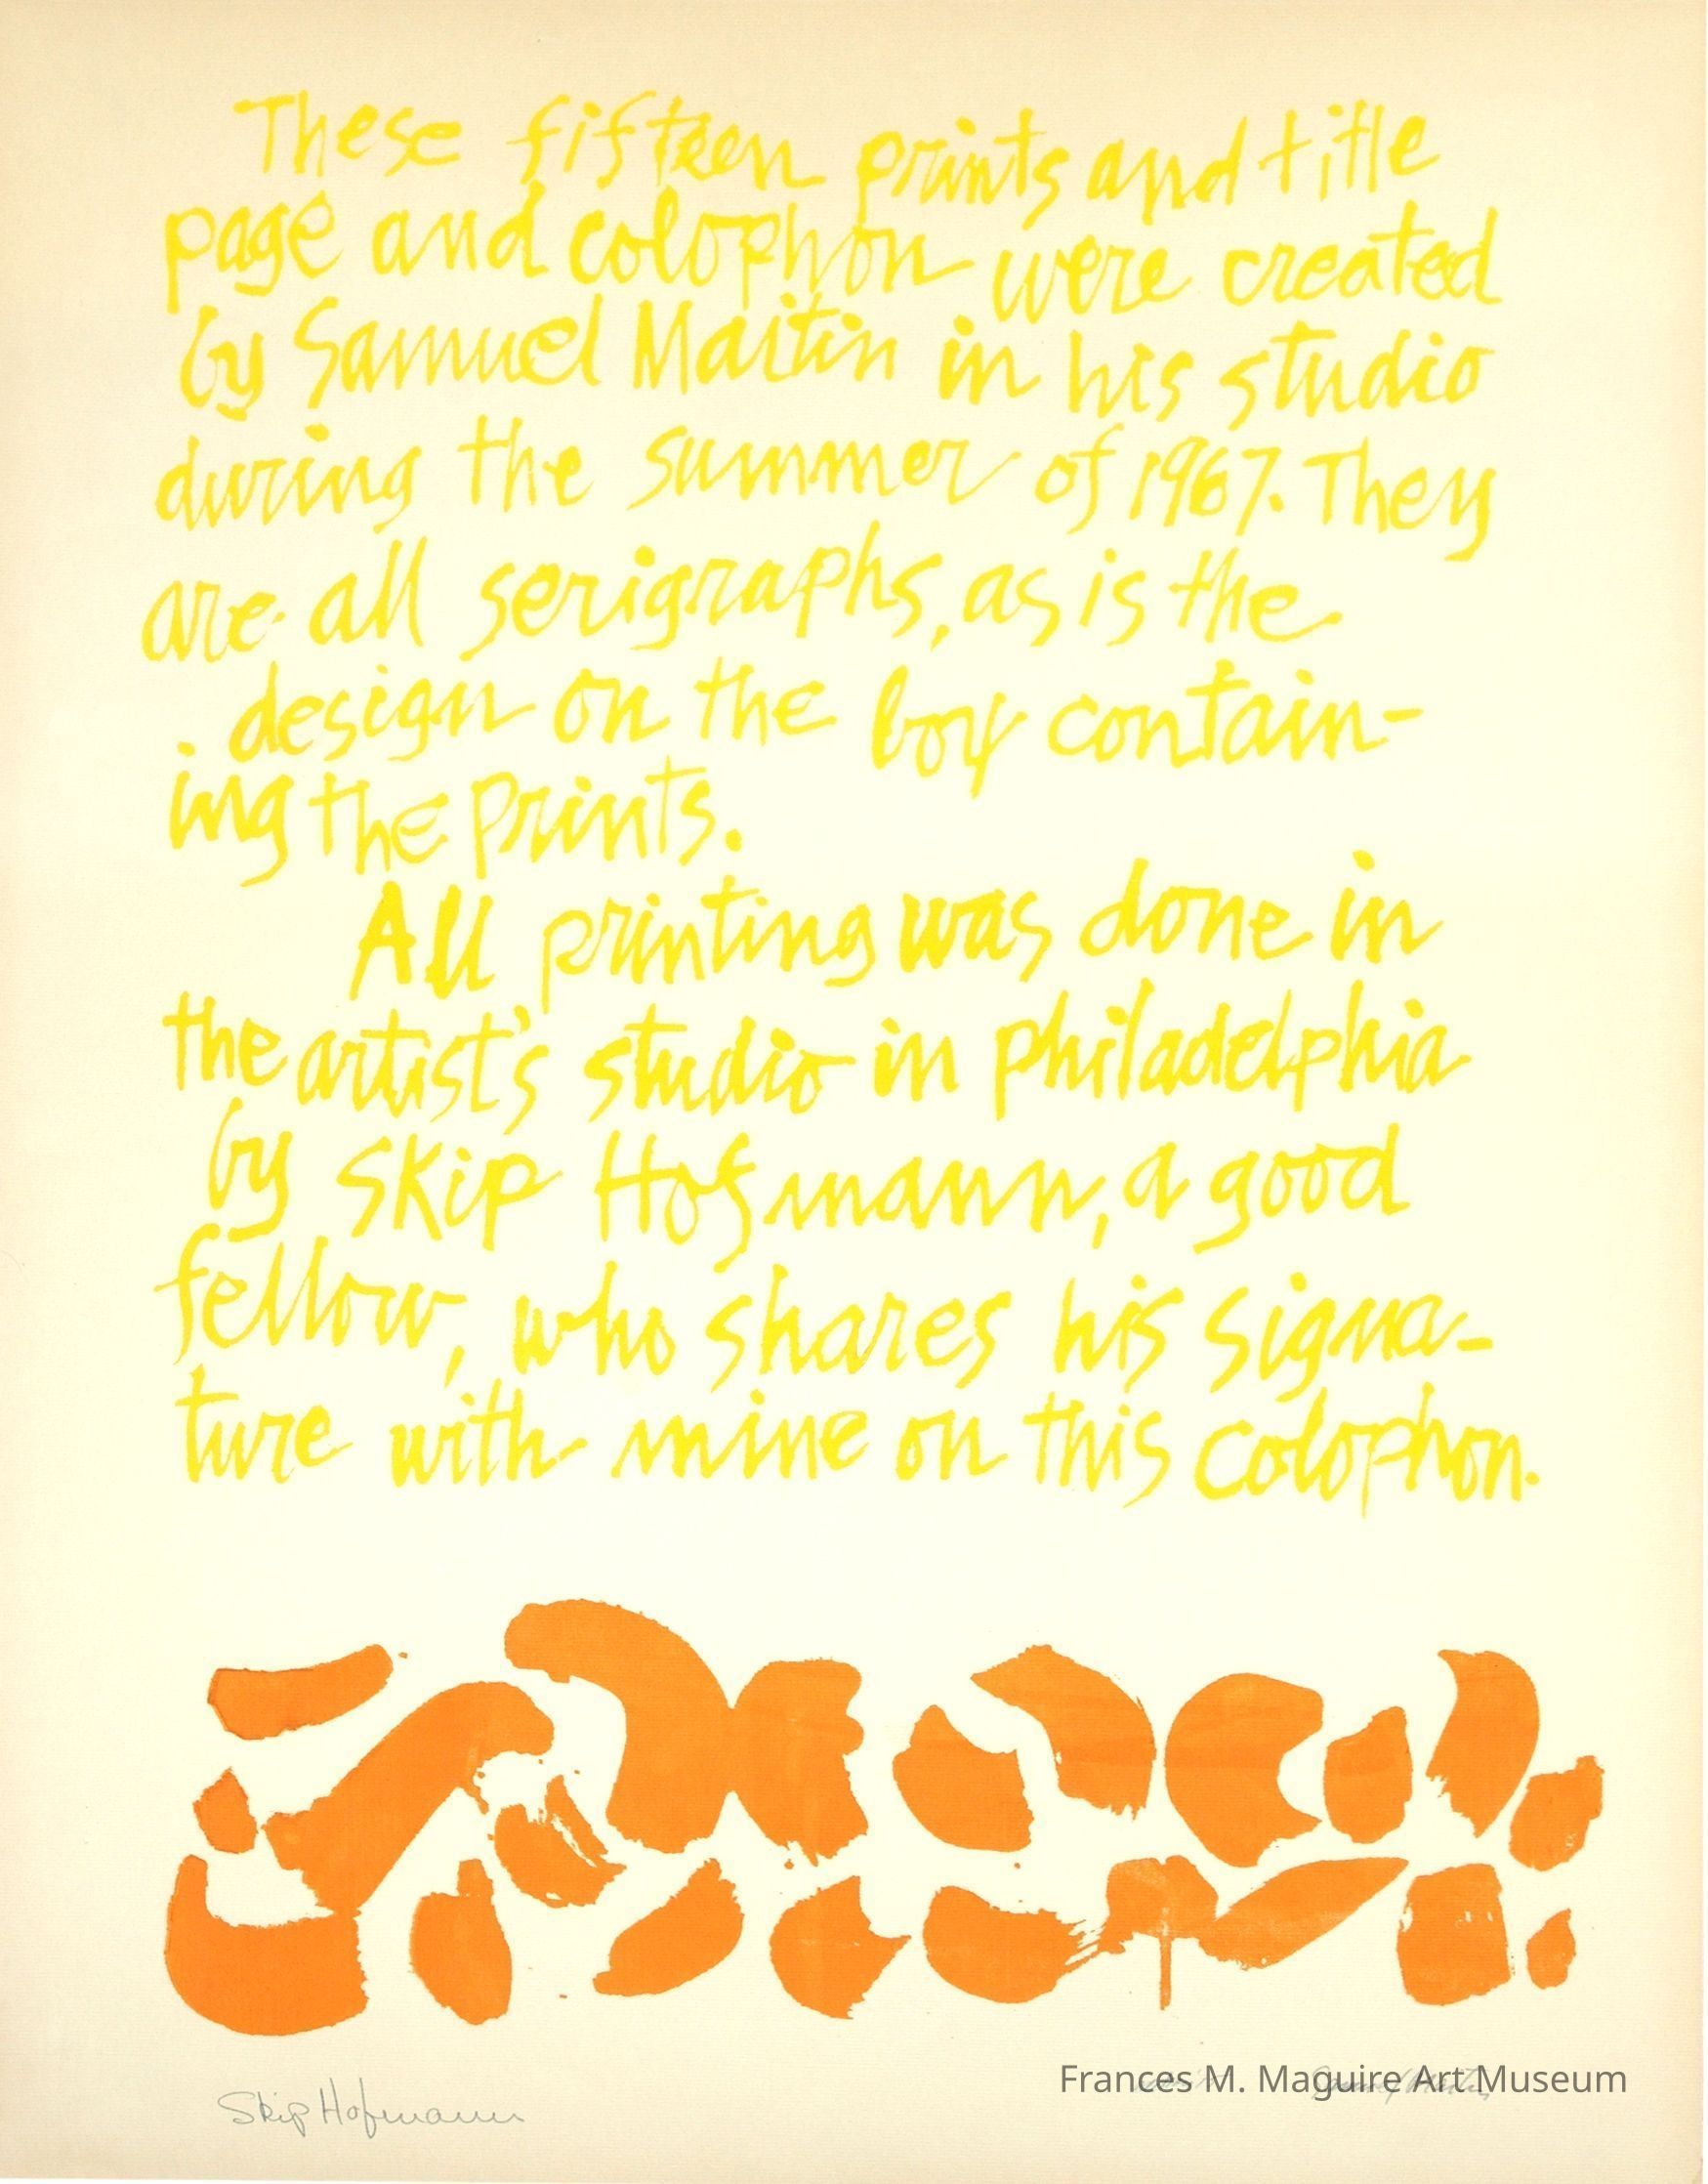 These fifteen prints and title
page and colophon were created
by Samuel Maitin in his studio
during the summer of 1967. They
are all serigraphs, as is the
design on the box contain-
ing the prints.
All printing was done in
the artist's studio in philadelphia
by Skip Hofmann, a good
fellow, who shares his signa-
ture with mine on this colophon.
Frances M. Maguire Art Museum
Skip Hofmann
Samuel Maitin